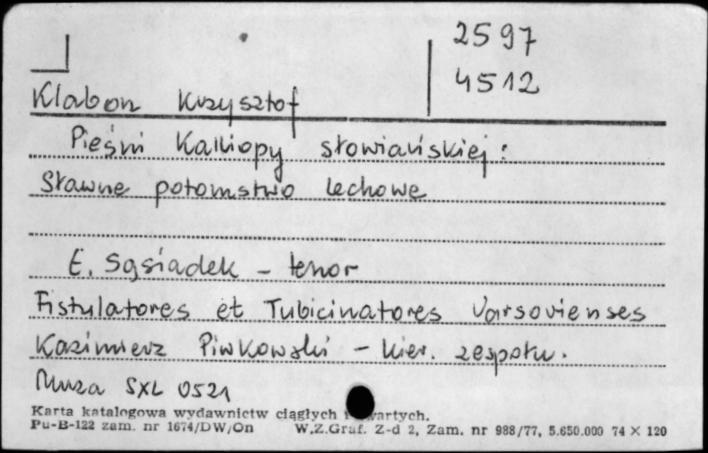 2597
4512
Klabon Krzysztof
Pieśni Kalliopy słowiańskiej:
Sławne potomstwo Lechowe
E. Sąsiadek – tenor
Fistulatores et Tubicinatores Varsovienses
Kazimierz Piwkowski – kier. zespołu.
Muza SXL 0521
Karta katalogowa wydawnictw ciągłych i zwartych.
Pu-B-122 zam. nr 1674/DW/On W.Z.Graf. Z-d 2, Zam. nr 988/77, 5.650.000 74 × 120